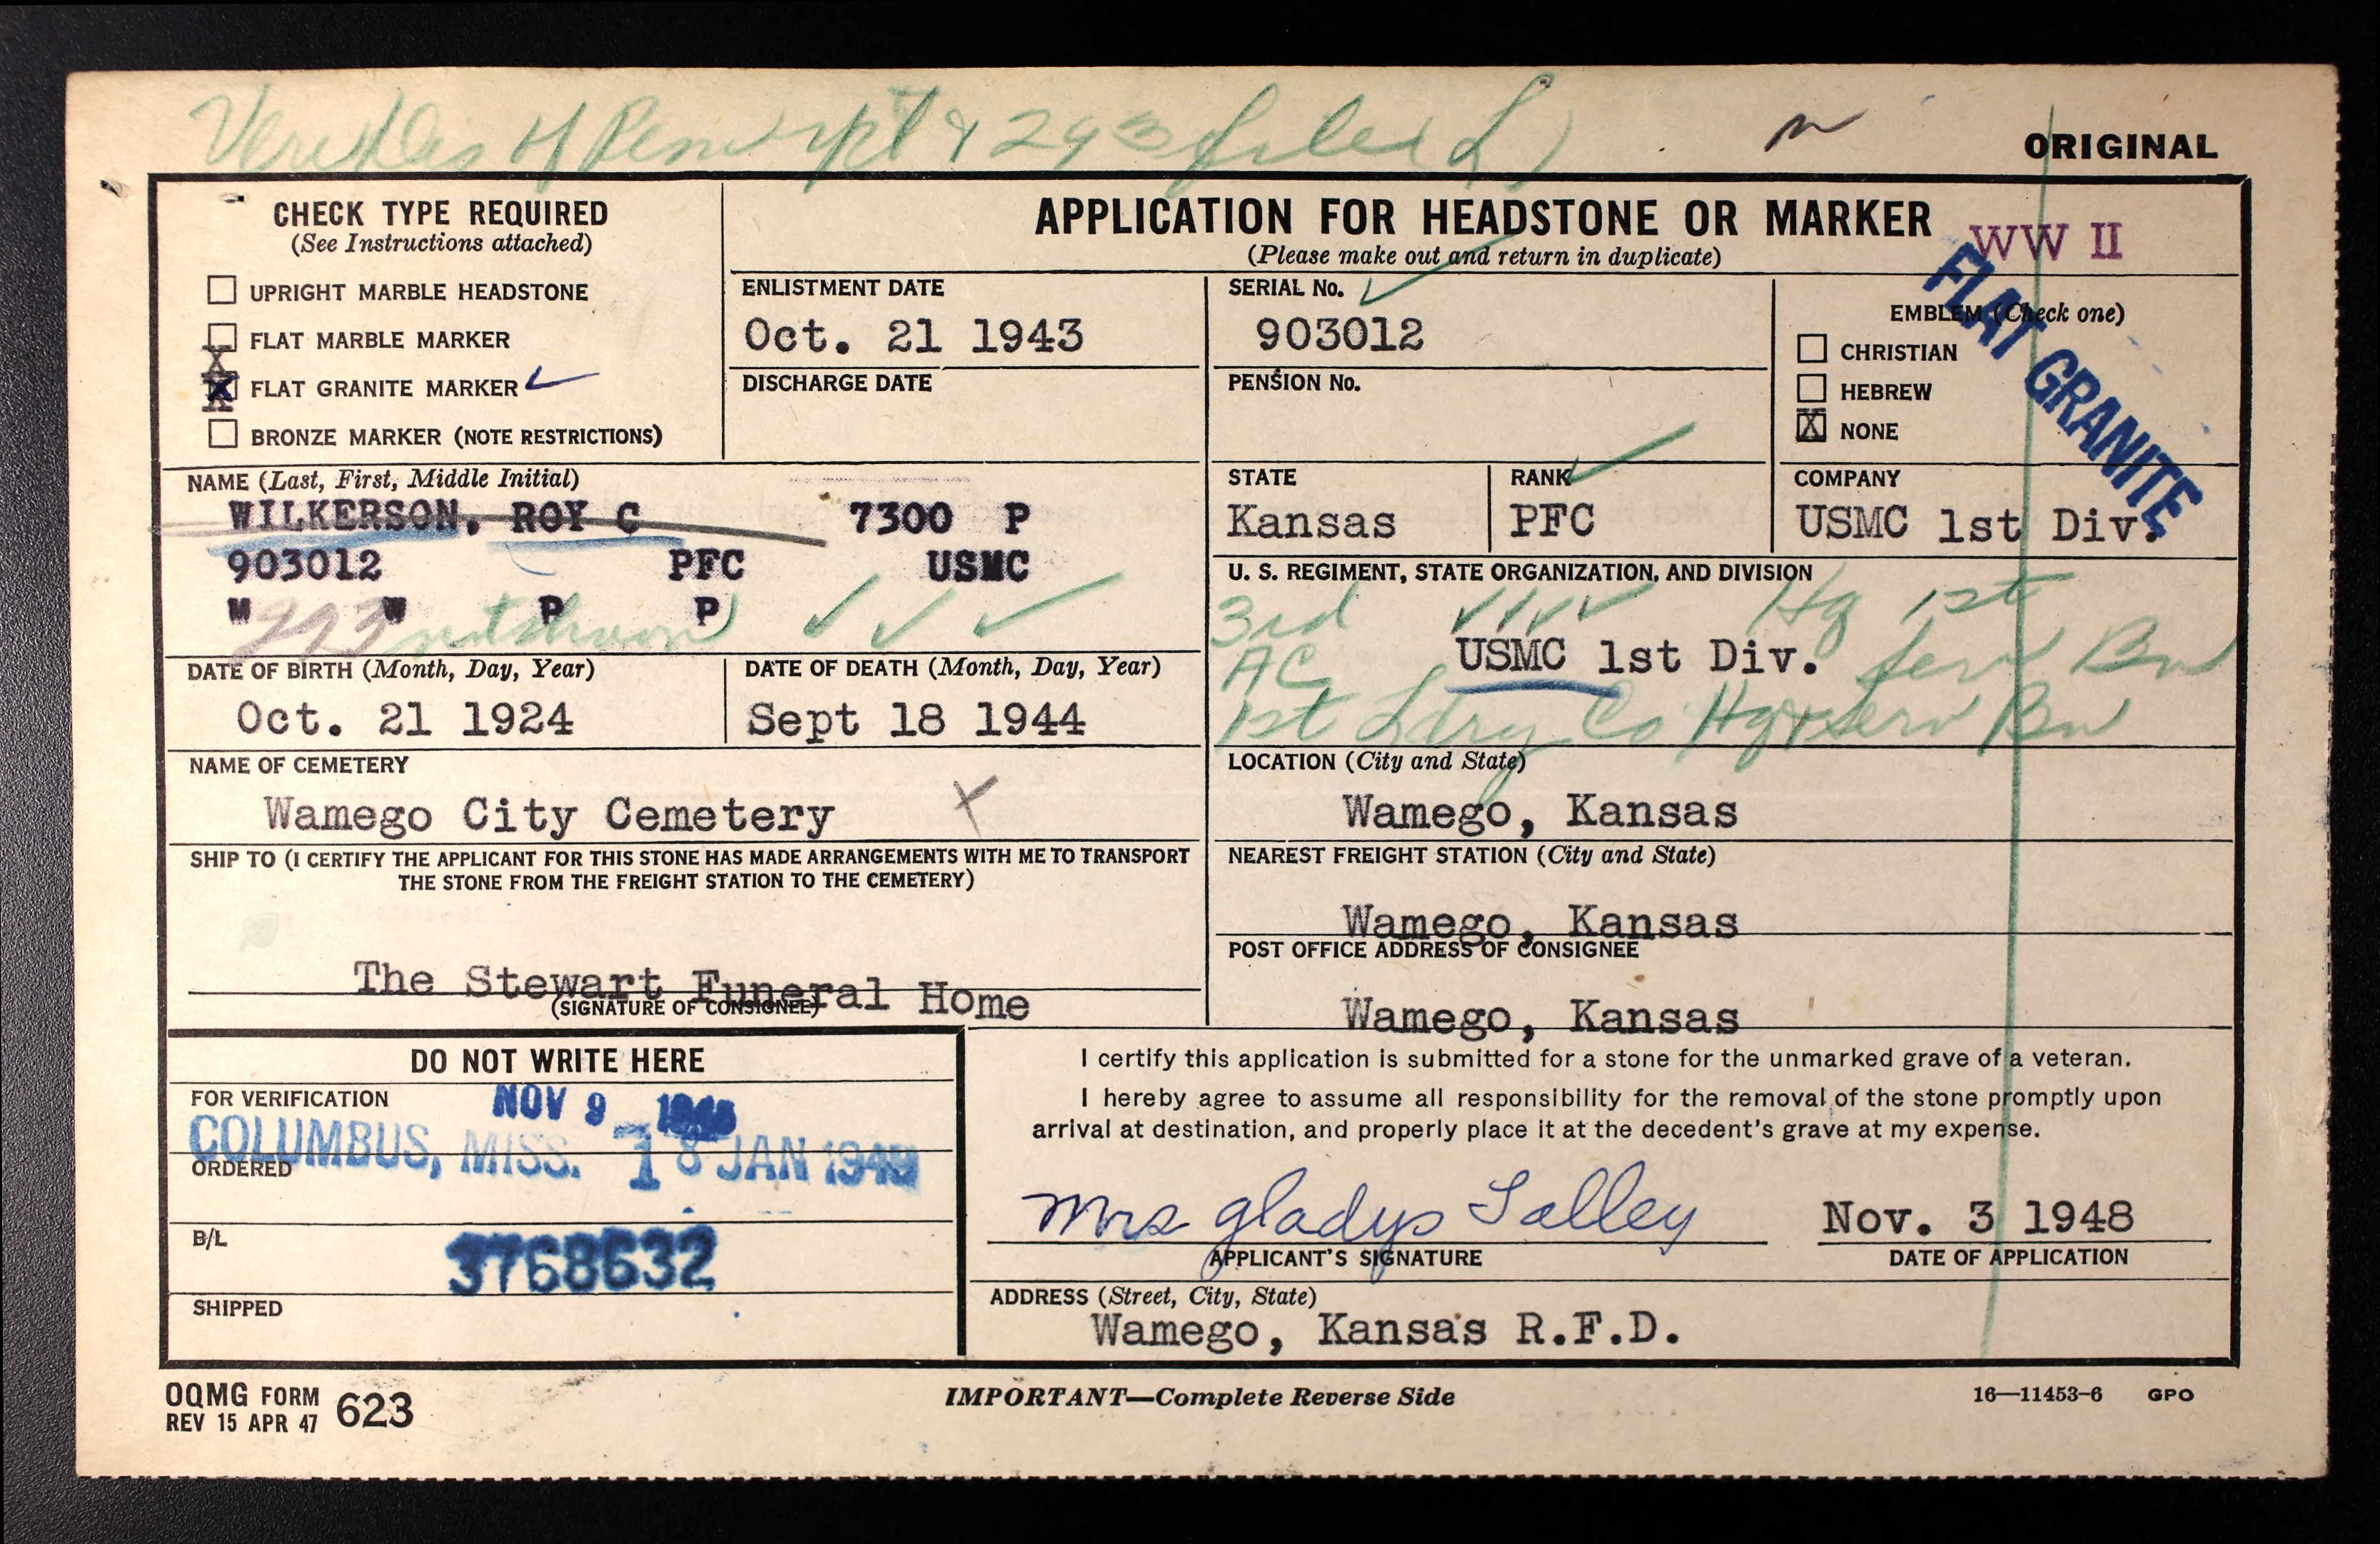 & 293 files
ORIGINAL
CHECK TYPE REQUIRED
(See Instructions attached)
UPRIGHT MARBLE HEADSTONE
FLAT MARBLE MARKER
X FLAT GRANITE MARKER
BRONZE MARKER (NOTE RESTRICTIONS)
APPLICATION FOR HEADSTONE OR MARKER
(Please make out and return in duplicate)
WW II
ENLISTMENT DATE
Oct. 21 1943
DISCHARGE DATE
SERIAL No.
903012
PENSION No.
EMBLEM (Check one)
CHRISTIAN
HEBREW
X NONE
FLAT GRANITE
NAME (Last, First, Middle Initial)
WILKERSON, ROY C 7300 P
903012 PFC USMC
M W P P
293
STATE
Kansas
RANK
PFC
COMPANY
USMC 1st Div.
U. S. REGIMENT, STATE ORGANIZATION, AND DIVISION
3rd Hq 1st
USMC 1st Div.
AC Serv Bn
1st Ldry Co Hq & Serv Bn
DATE OF BIRTH (Month, Day, Year)
Oct. 21 1924
DATE OF DEATH (Month, Day, Year)
Sept 18 1944
NAME OF CEMETERY
Wamego City Cemetery X
LOCATION (City and State)
Wamego, Kansas
SHIP TO (I CERTIFY THE APPLICANT FOR THIS STONE HAS MADE ARRANGEMENTS WITH ME TO TRANSPORT
THE STONE FROM THE FREIGHT STATION TO THE CEMETERY)
The Stewart Funeral Home
(SIGNATURE OF CONSIGNEE)
NEAREST FREIGHT STATION (City and State)
Wamego, Kansas
POST OFFICE ADDRESS OF CONSIGNEE
Wamego, Kansas
DO NOT WRITE HERE
FOR VERIFICATION
NOV 9 1948
COLUMBUS, MISS. 18 JAN 1949
ORDERED
B/L
3768632
SHIPPED
I certify this application is submitted for a stone for the unmarked grave of a veteran.
I hereby agree to assume all responsibility for the removal of the stone promptly upon
arrival at destination, and properly place it at the decedent's grave at my expense.
Mrs Gladys Talley
APPLICANT'S SIGNATURE
Nov. 3 1948
DATE OF APPLICATION
ADDRESS (Street, City, State)
Wamego, Kansas R.F.D.
OQMG FORM 623
REV 15 APR 47
IMPORTANT—Complete Reverse Side
16—11453-6 GPO